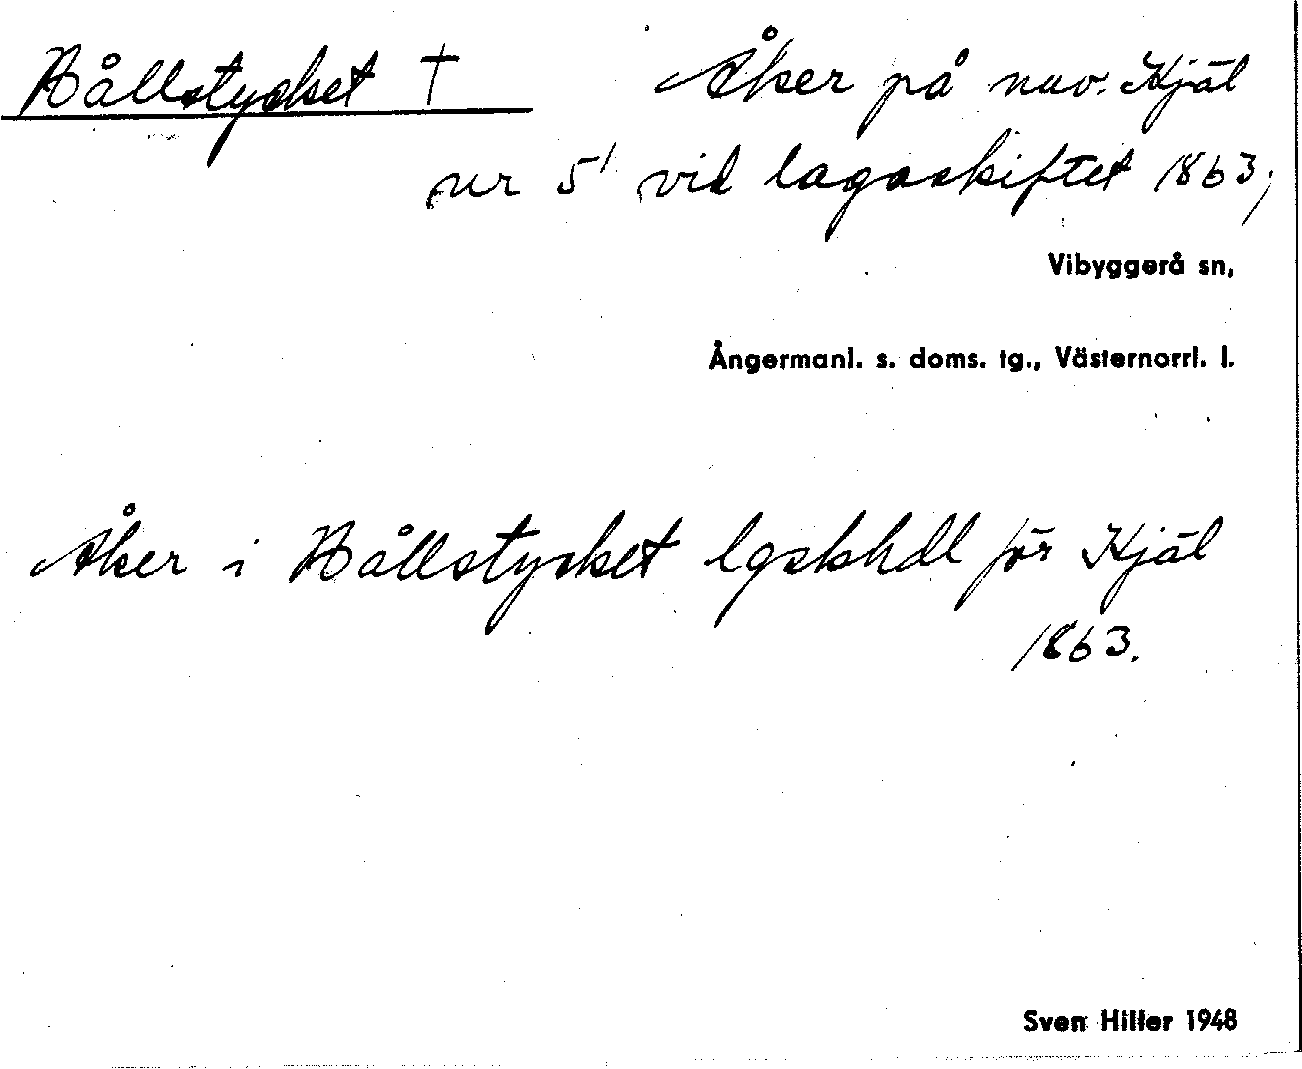 Bållstycket † Åker på nuv. Kjäl
nr 5¹ vid lagaskiftet 1863;
Vibyggerå sn,
Ångermanl. s. doms. tg., Västernorrl. l.
Åker i Bållstycket lgskhdl för Kjäl
1863.
Sven Hiller 1948